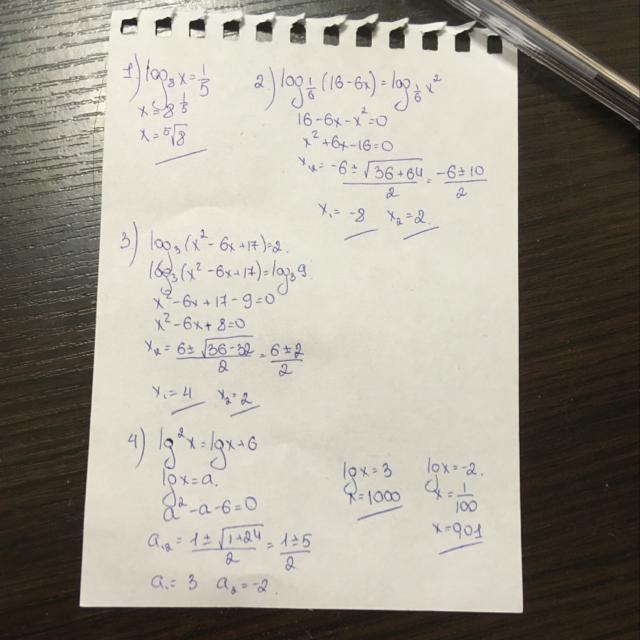 1) log₈x=1/5
x=8^(1/5)
x=⁵√8
2) log_(1/6)(16-6x)=log_(1/6)x²
16-6x-x²=0
x²+6x-16=0
x₁,₂=(-6±√(36+64))/2=(-6±10)/2
x₁=-8 x₂=2.
3) log₃(x²-6x+17)=2.
log₃(x²-6x+17)=log₃9
x²-6x+17-9=0
x²-6x+8=0
x₁,₂=(6±√(36-32))/2=(6±2)/2
x₁=4 x₂=2
4) lg²x=lgx+6
lgx=a.
a²-a-6=0
a₁,₂=(1±√(1+24))/2=(1±5)/2
a₁=3 a₂=-2.
lgx=3
x=1000
lgx=-2.
x=1/100
x=901